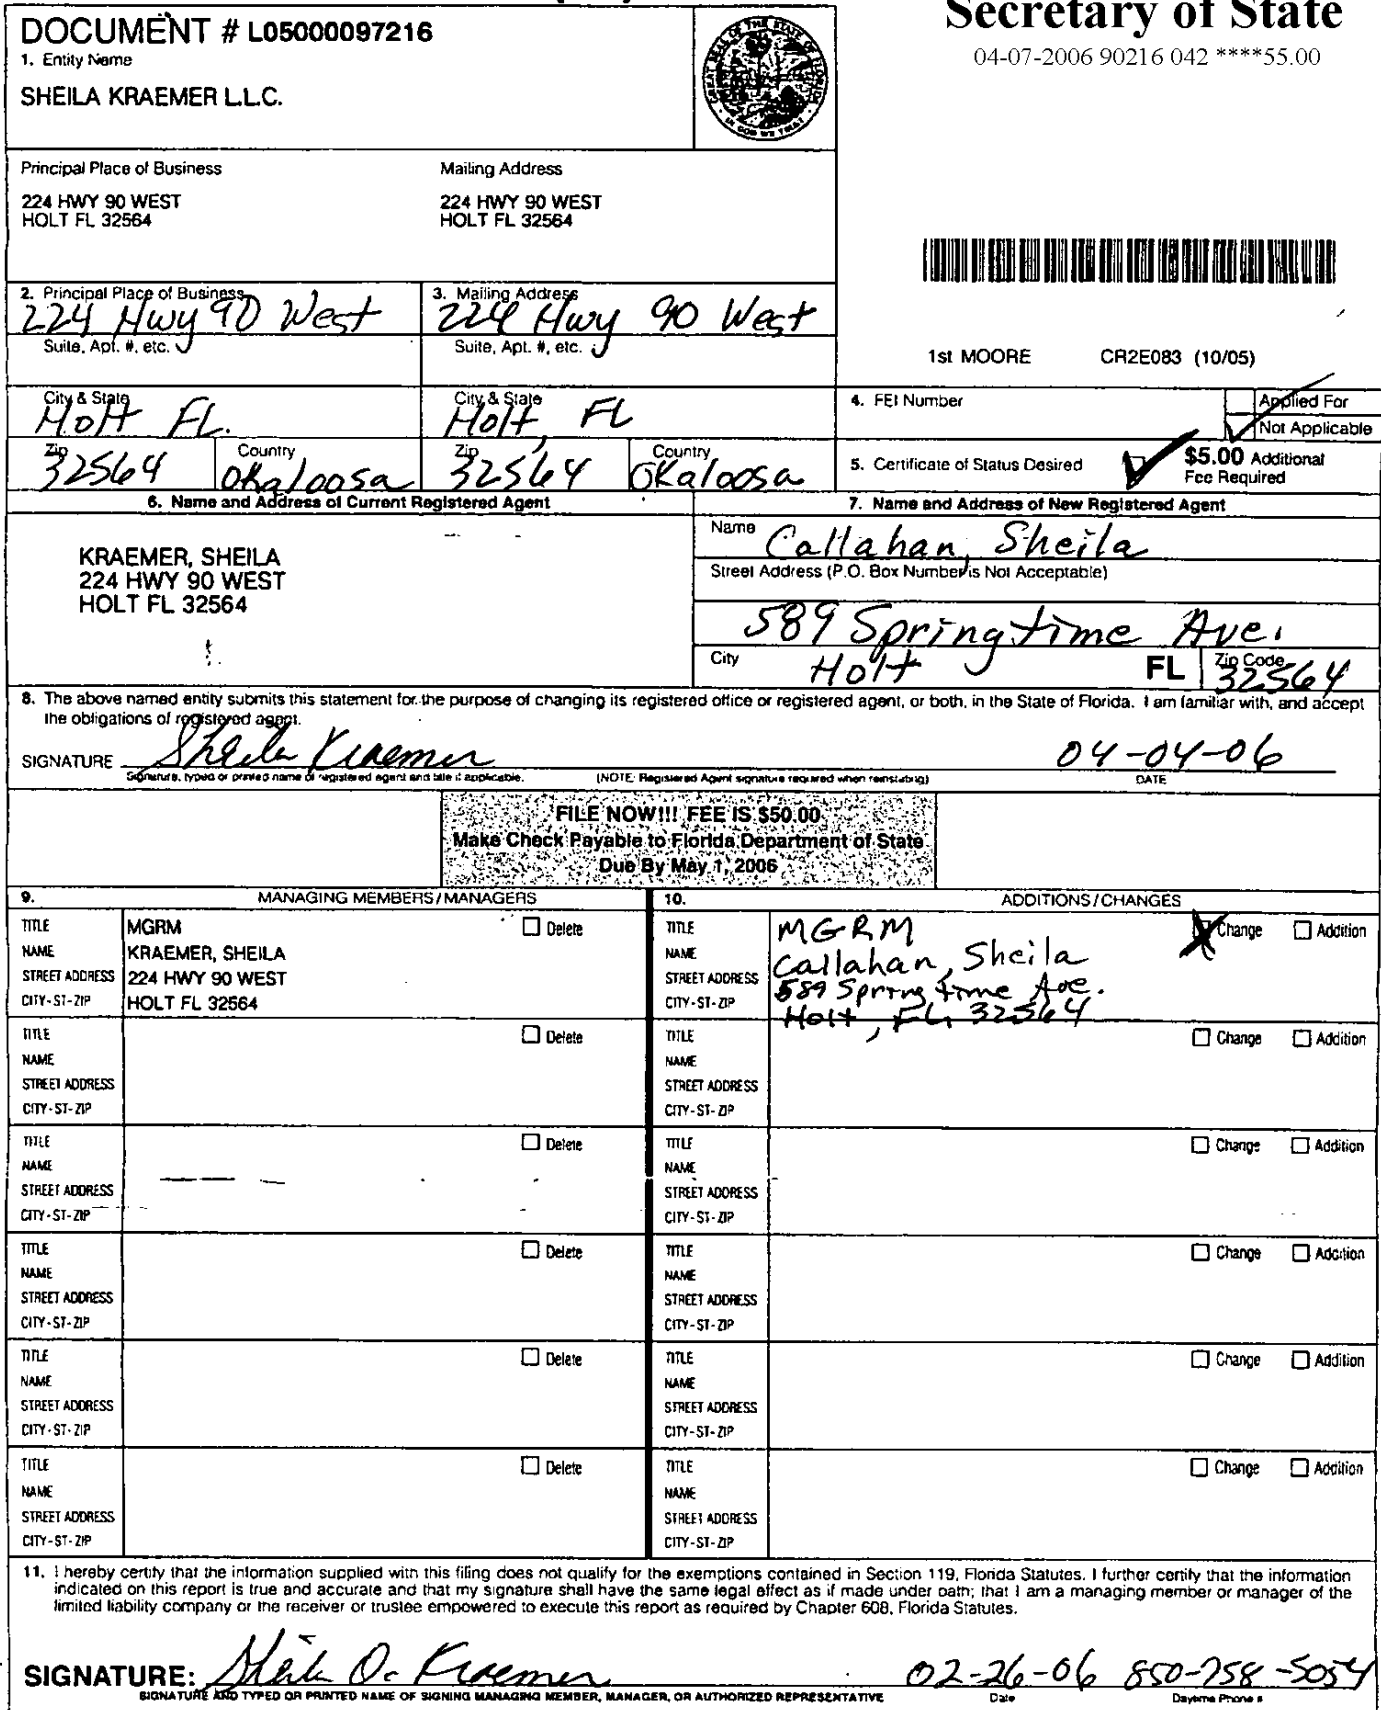 Secretary of State
04-07-2006 90216 042 ****55.00
DOCUMENT # L05000097216
1. Entity Name
SHEILA KRAEMER L.L.C.
GREAT SEAL OF THE STATE OF FLORIDA
IN GOD WE TRUST
Principal Place of Business
224 HWY 90 WEST
HOLT FL 32564
Mailing Address
224 HWY 90 WEST
HOLT FL 32564
2. Principal Place of Business
224 Hwy 90 West
Suite, Apt. #, etc.
3. Mailing Address
224 Hwy 90 West
Suite, Apt. #, etc.
1st MOORE CR2E083 (10/05)
City & State
Holt FL.
City & State
Holt, FL
4. FEI Number
Applied For
Not Applicable
Zip
32564
Country
Okaloosa
Zip
32564
Country
Okaloosa
5. Certificate of Status Desired
$5.00 Additional
Fee Required
6. Name and Address of Current Registered Agent
KRAEMER, SHEILA
224 HWY 90 WEST
HOLT FL 32564
7. Name and Address of New Registered Agent
Name
Callahan, Sheila
Street Address (P.O. Box Number is Not Acceptable)
589 Springtime Ave.
City
Holt
FL
Zip Code
32564
8. The above named entity submits this statement for the purpose of changing its registered office or registered agent, or both, in the State of Florida. I am familiar with, and accept
the obligations of registered agent.
SIGNATURE Sheila Kraemer 04-04-06
Signature, typed or printed name of registered agent and title if applicable. (NOTE: Registered Agent signature required when reinstating) DATE
FILE NOW!!! FEE IS $50.00
Make Check Payable to Florida Department of State
Due By May 1, 2006
9. MANAGING MEMBERS/MANAGERS
TITLE MGRM Delete
NAME KRAEMER, SHEILA
STREET ADDRESS 224 HWY 90 WEST
CITY-ST-ZIP HOLT FL 32564
TITLE Delete
NAME
STREET ADDRESS
CITY-ST-ZIP
TITLE Delete
NAME
STREET ADDRESS
CITY-ST-ZIP
TITLE Delete
NAME
STREET ADDRESS
CITY-ST-ZIP
TITLE Delete
NAME
STREET ADDRESS
CITY-ST-ZIP
TITLE Delete
NAME
STREET ADDRESS
CITY-ST-ZIP
10. ADDITIONS/CHANGES
TITLE MGRM Change Addition
NAME Callahan, Sheila
STREET ADDRESS 589 Springtime Ave.
CITY-ST-ZIP Holt, FL 32564
TITLE Change Addition
NAME
STREET ADDRESS
CITY-ST-ZIP
TITLE Change Addition
NAME
STREET ADDRESS
CITY-ST-ZIP
TITLE Change Addition
NAME
STREET ADDRESS
CITY-ST-ZIP
TITLE Change Addition
NAME
STREET ADDRESS
CITY-ST-ZIP
TITLE Change Addition
NAME
STREET ADDRESS
CITY-ST-ZIP
11. I hereby certify that the information supplied with this filing does not qualify for the exemptions contained in Section 119, Florida Statutes. I further certify that the information
indicated on this report is true and accurate and that my signature shall have the same legal effect as if made under oath; that I am a managing member or manager of the
limited liability company or the receiver or trustee empowered to execute this report as required by Chapter 608, Florida Statutes.
SIGNATURE: Sheila O. Kraemer 02-26-06 850-758-5054
SIGNATURE AND TYPED OR PRINTED NAME OF SIGNING MANAGING MEMBER, MANAGER, OR AUTHORIZED REPRESENTATIVE Date Daytime Phone #